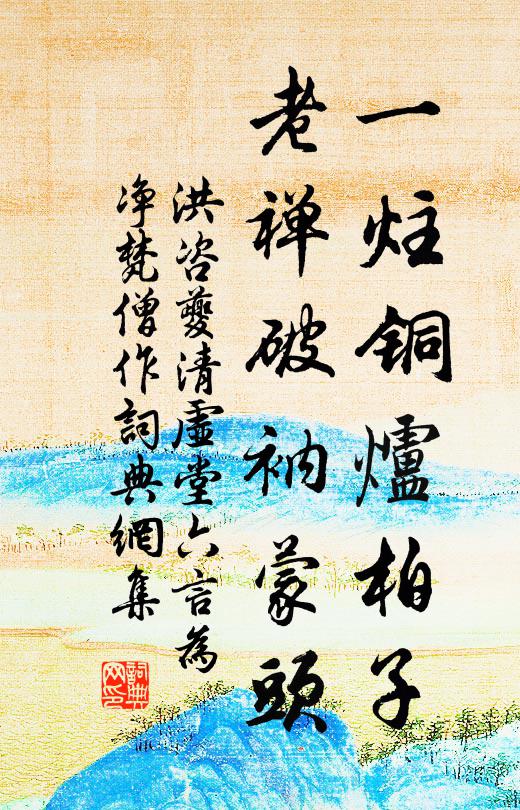 一炷铜爐柏子
老禅破衲蒙頭
洪咨夔清虚堂六言為
净梵僧作詞典網集
詞典網印